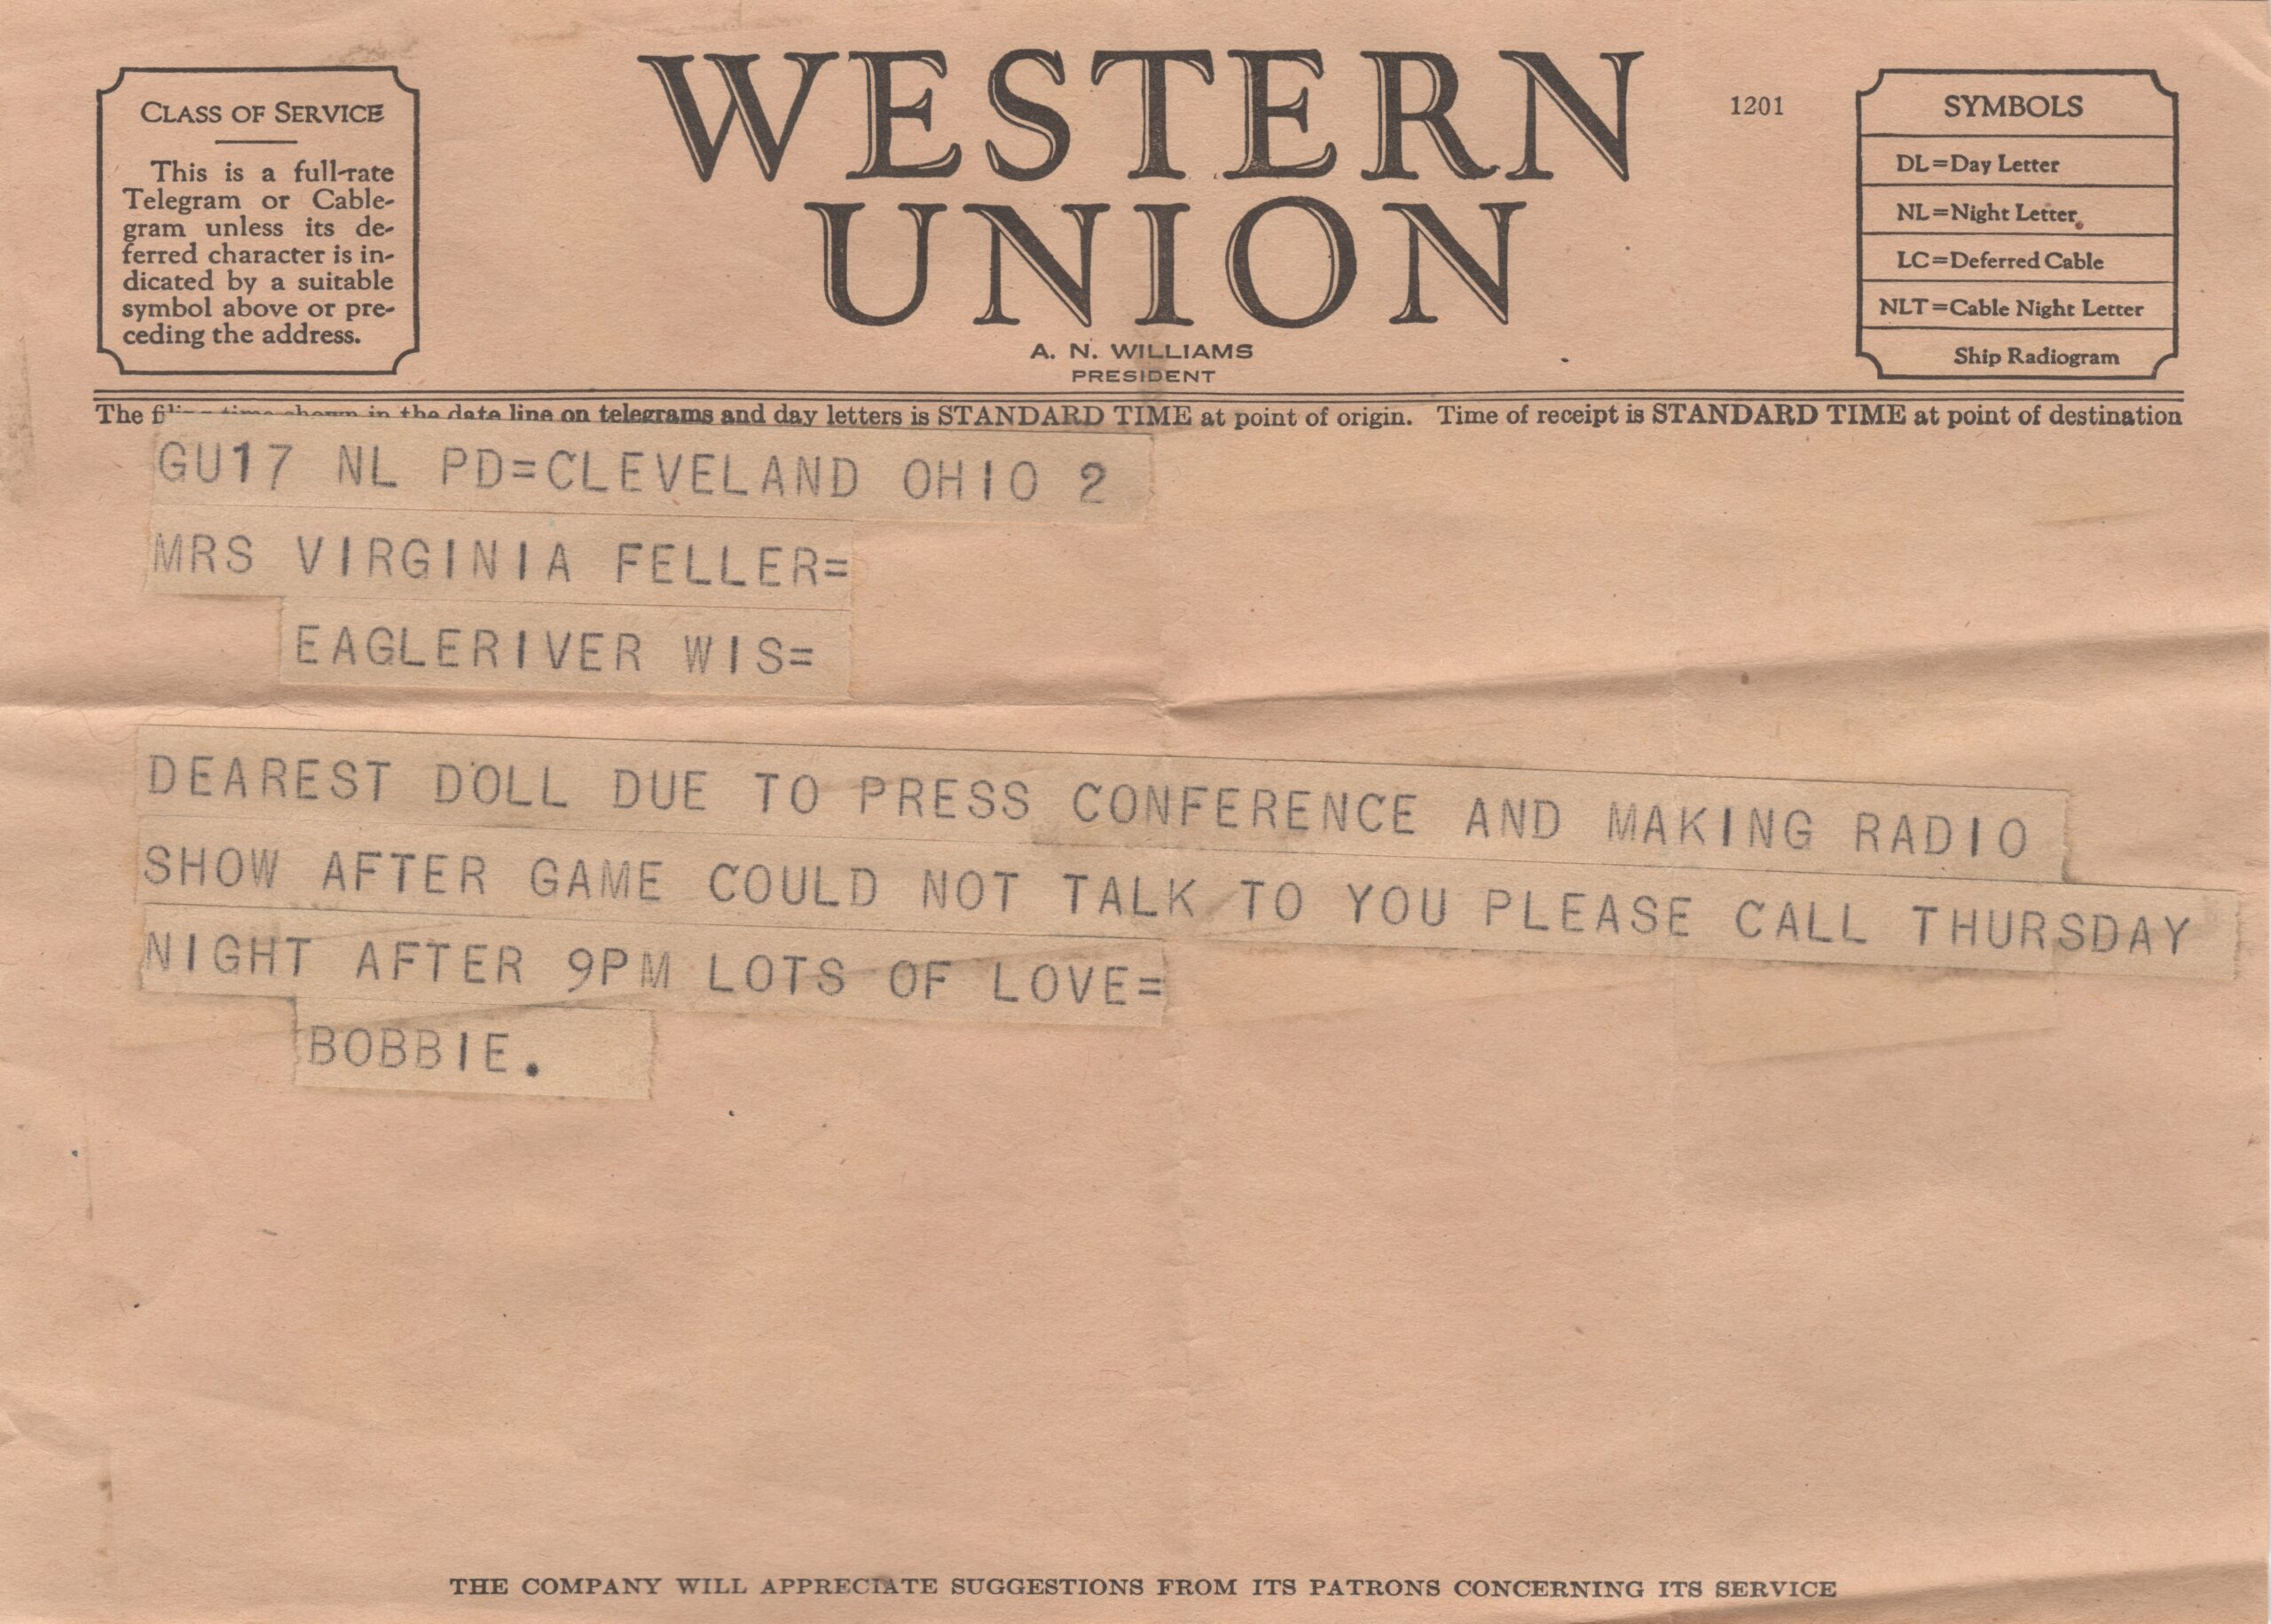 CLASS OF SERVICE
This is a full-rate
Telegram or Cable-
gram unless its de-
ferred character is in-
dicated by a suitable
symbol above or pre-
ceding the address.
WESTERN
UNION
A. N. WILLIAMS
PRESIDENT
1201
SYMBOLS
DL=Day Letter
NL=Night Letter
LC=Deferred Cable
NLT=Cable Night Letter
Ship Radiogram
The filing time shown in the date line on telegrams and day letters is STANDARD TIME at point of origin. Time of receipt is STANDARD TIME at point of destination
GU17 NL PD=CLEVELAND OHIO 2
MRS VIRGINIA FELLER=
EAGLERIVER WIS=
DEAREST DOLL DUE TO PRESS CONFERENCE AND MAKING RADIO
SHOW AFTER GAME COULD NOT TALK TO YOU PLEASE CALL THURSDAY
NIGHT AFTER 9PM LOTS OF LOVE=
BOBBIE.
THE COMPANY WILL APPRECIATE SUGGESTIONS FROM ITS PATRONS CONCERNING ITS SERVICE